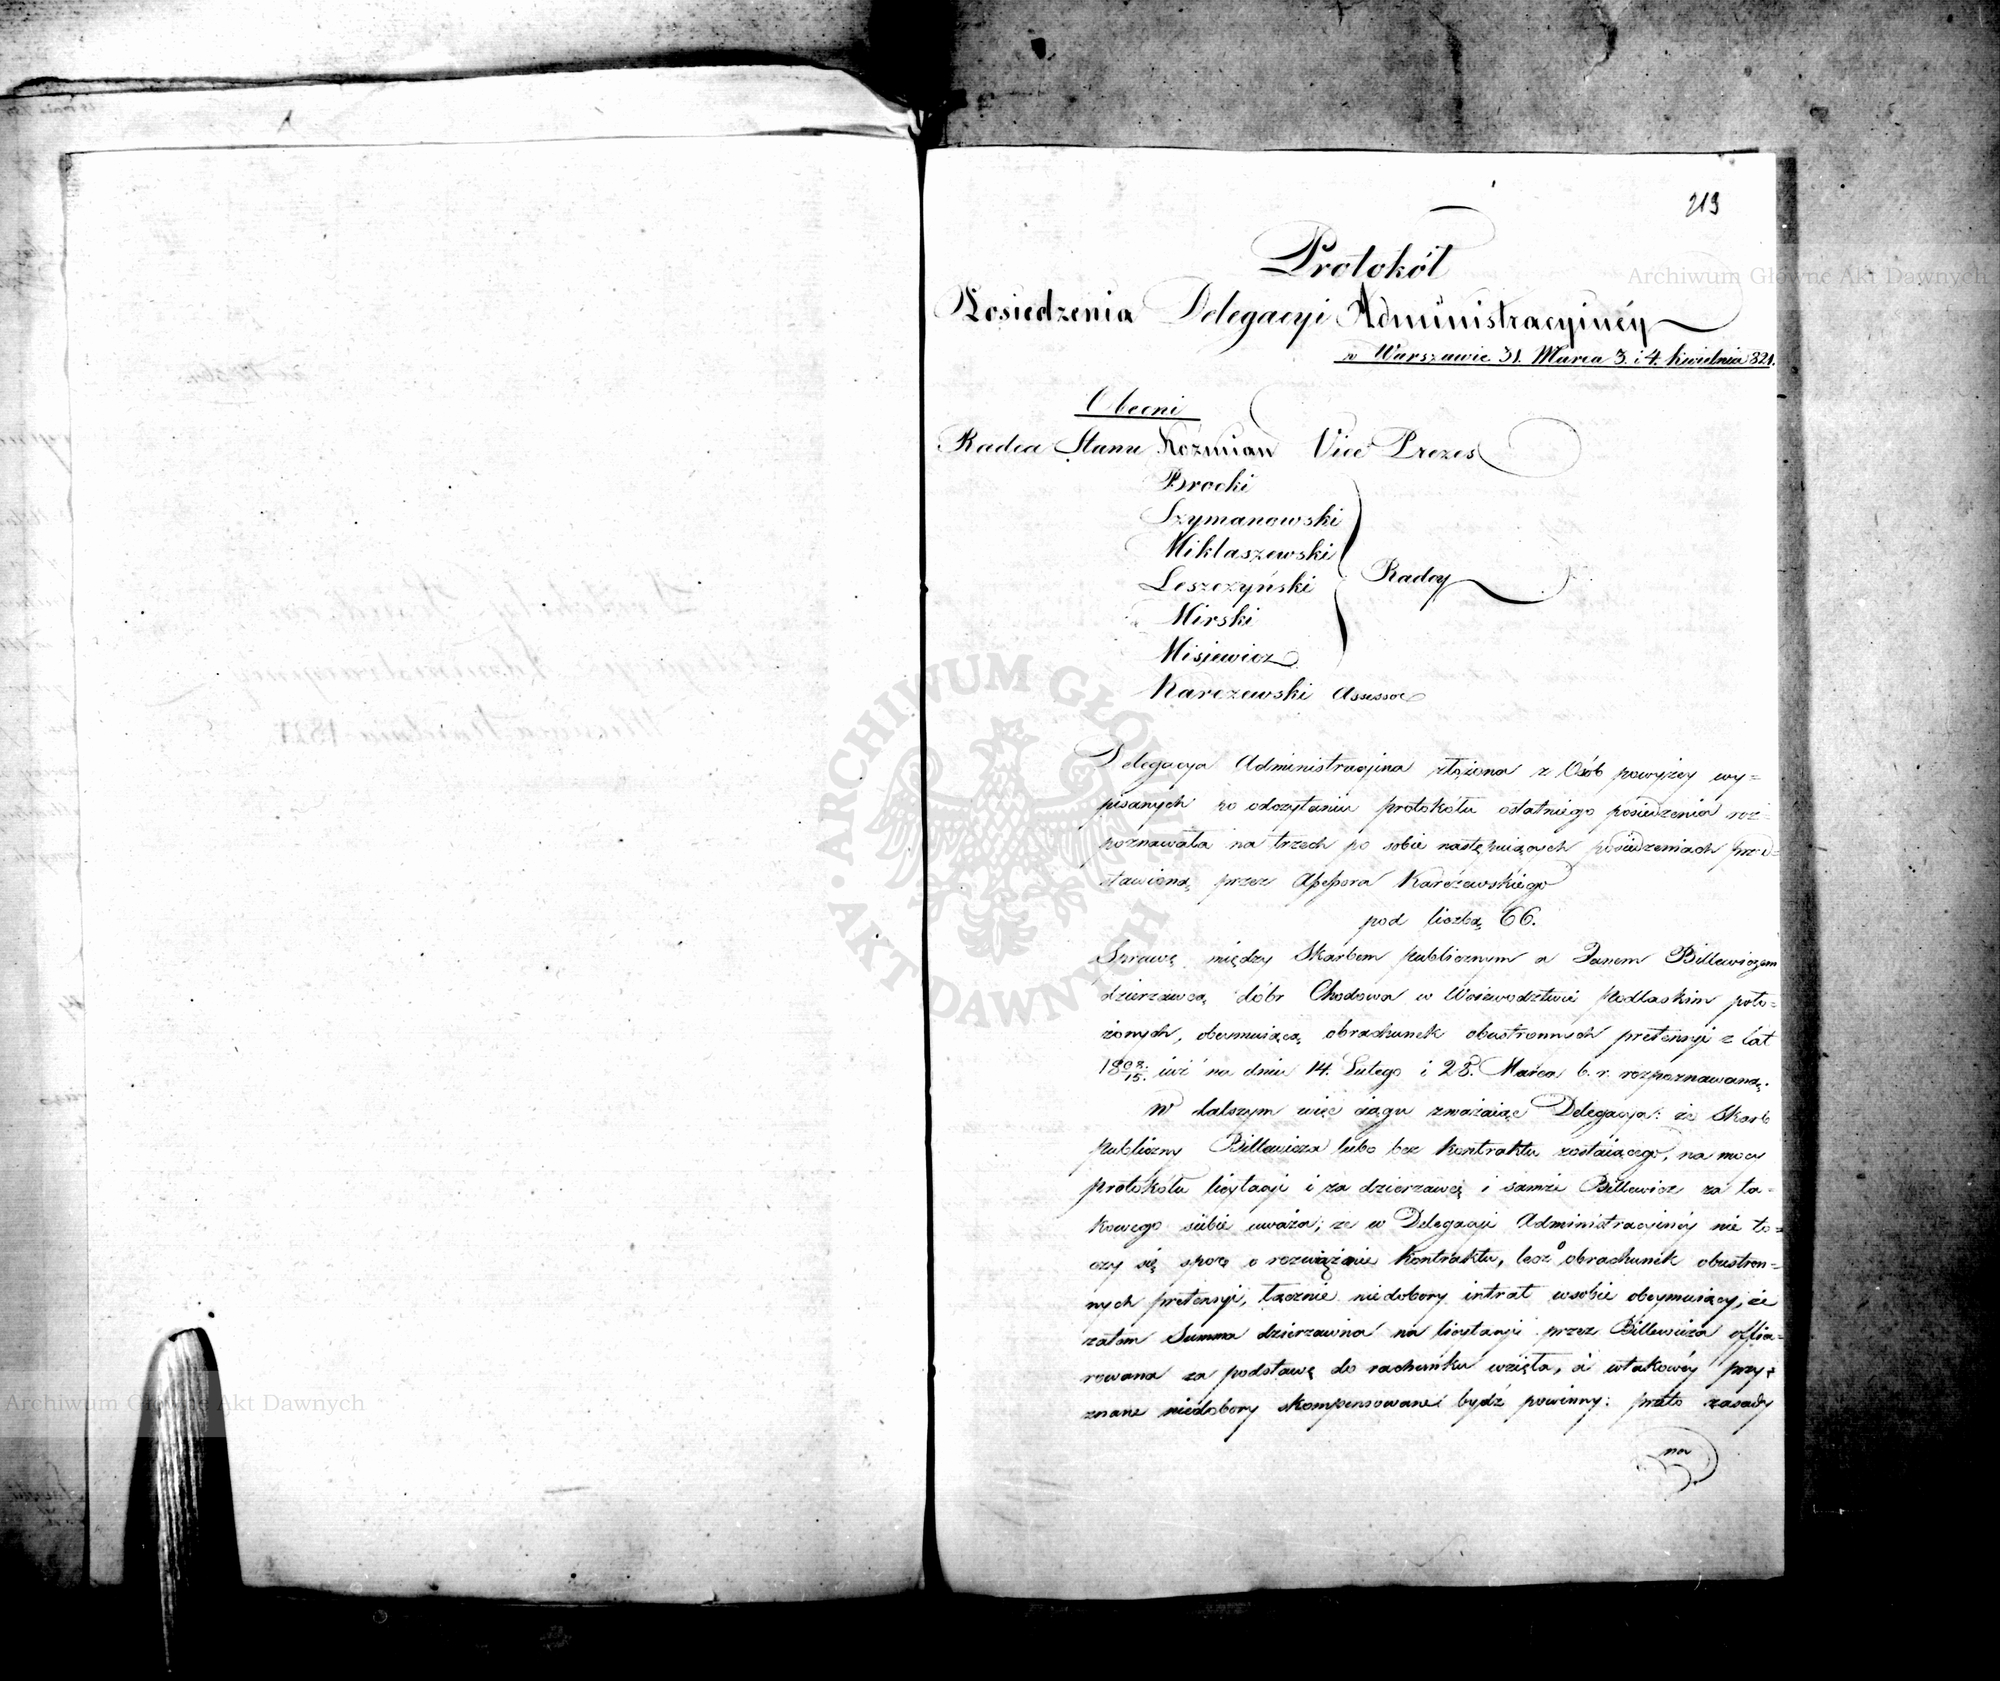 219
Protokół
Posiedzenia Delegacyi Administracyinéy
w Warszawie 31. Marca 3. i 4. Kwietnia 821.
Obecni
Radca Stanu Koźmian Vice Prezes
Brocki
Szymanowski
Miklaszewski
Leszczyński
Radcy
Mirski
Misiewicz
Karczewski Assessor
Delegacya Administracyina złożona z Osób powyżey wy=
pisanych po odczytaniu protokółu ostatniego posiedzenia roz=
poznawała na trzech po sobie następuiących posiedzeniach przed=
stawioną przez Assessora Karczewskiego
pod liczbą 66.
Sprawę między Skarbem publicznym a Janem Billewiczem
dzierzawcą dóbr Chodowa w Woiewodztwie Podlaskim poło=
żonych, obeymuiącą obrachunek obustronnych pretensyi z lat
18 08/15. iuż na dniu 14. Lutego i 28. Marca b. r. rozpoznawaną.
W dalszym więc ciągu zważaiąc Delegacya: że Skarb
publiczny Billewicza lubo bez kontraktu zostaiącego, na mocy
protokółu licytacyi i za dzierzawcę i samże Billewicz za ta=
kowego siebie uważa; że w Delegacyi Administracyinéy nie to=
czy się spór o rozwiązanie kontraktu, lecz o obrachunek obustron=
nych pretensyi, łącznie niedobory intrat w sobie obeymuiący, że
zatem Summa dzierzawna na licytacyi przez Billewicza offia=
rowana za podstawę do rachunku wzięta, a w takowéy przy=
znane niedobory skompensowane bydź powinny: przeto zasady
na
Archiwum Główne Akt Dawnych
Archiwum Główne Akt Dawnych
ARCHIWUM GŁÓWNE AKT DAWNYCH